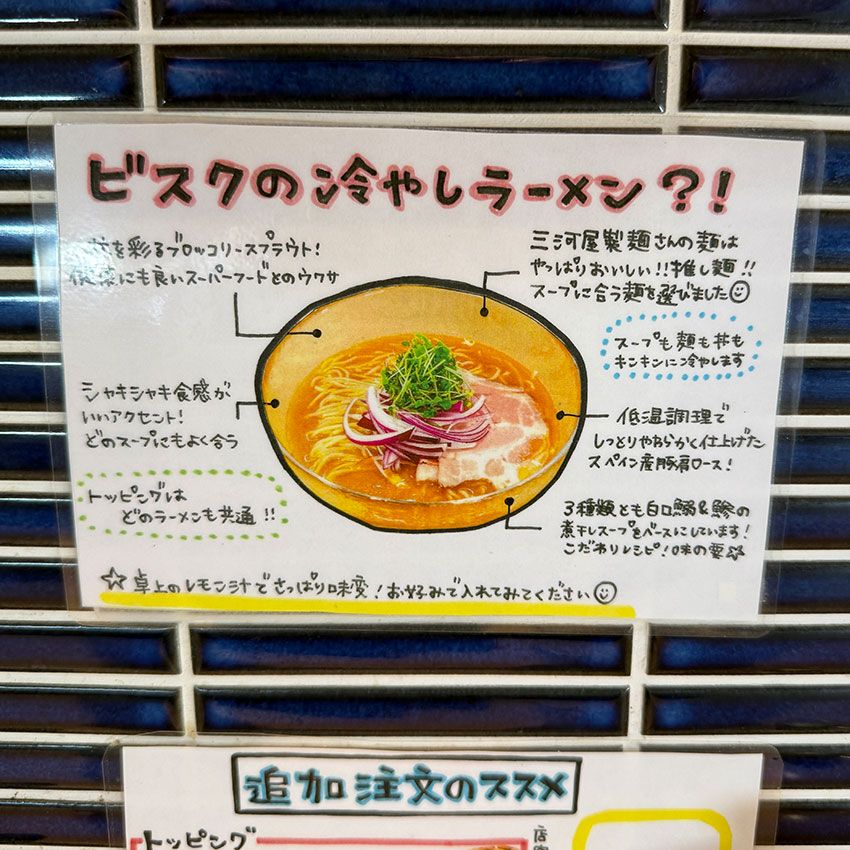 ビスクの冷やしラーメン?!
を彩るブロッコリースプラウト!
にも良いスーパーフードとのウワサ
三河屋製麺さんの麺は
やっぱりおいしい!!推し麺!!
スープに合う麺を選びました
スープも麺も丼も
キンキンに冷やします
シャキシャキ食感が
いいアクセント!
どのスープにもよく合う
低温調理で
しっとりやわらかく仕上げた
スペイン産豚肩ロース!
トッピングは
どのラーメンも共通!!
3種類とも白口鰯&鯵の
煮干しスープをベースにしています!
こだわりレシピ!味の要☆
☆卓上のレモン汁でさっぱり味変!お好みで入れてみてください
追加注文のススメ
トッピング
店